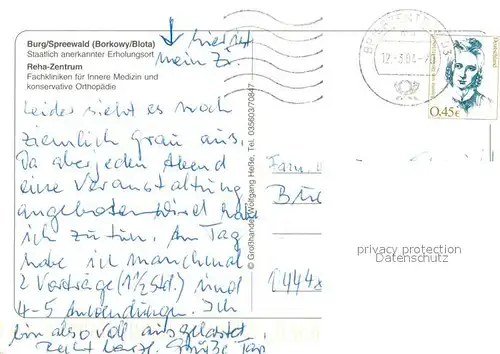 Burg/Spreewald (Borkowy/Blota)
Staatlich anerkannter Erholungsort
Reha-Zentrum
Fachkliniken für Innere Medizin und
konservative Orthopädie
hier ist
mein Zi.
Leider sieht es noch
ziemlich grau aus.
Da aber jeden Abend
eine Veranstaltung
angeboten wird habe
ich zu tun. Am Tag
habe ich manchmal
2 Vorträge (1½ Std.) und
4-5 Anwendungen. Ich
bin also voll ausgelastet.
Grüße
© Großhandel Wolfgang Heße, Tel. 035603/70847
12.-3.04
Deutschland
0,45€
Fam.
privacy protection
Datenschutz